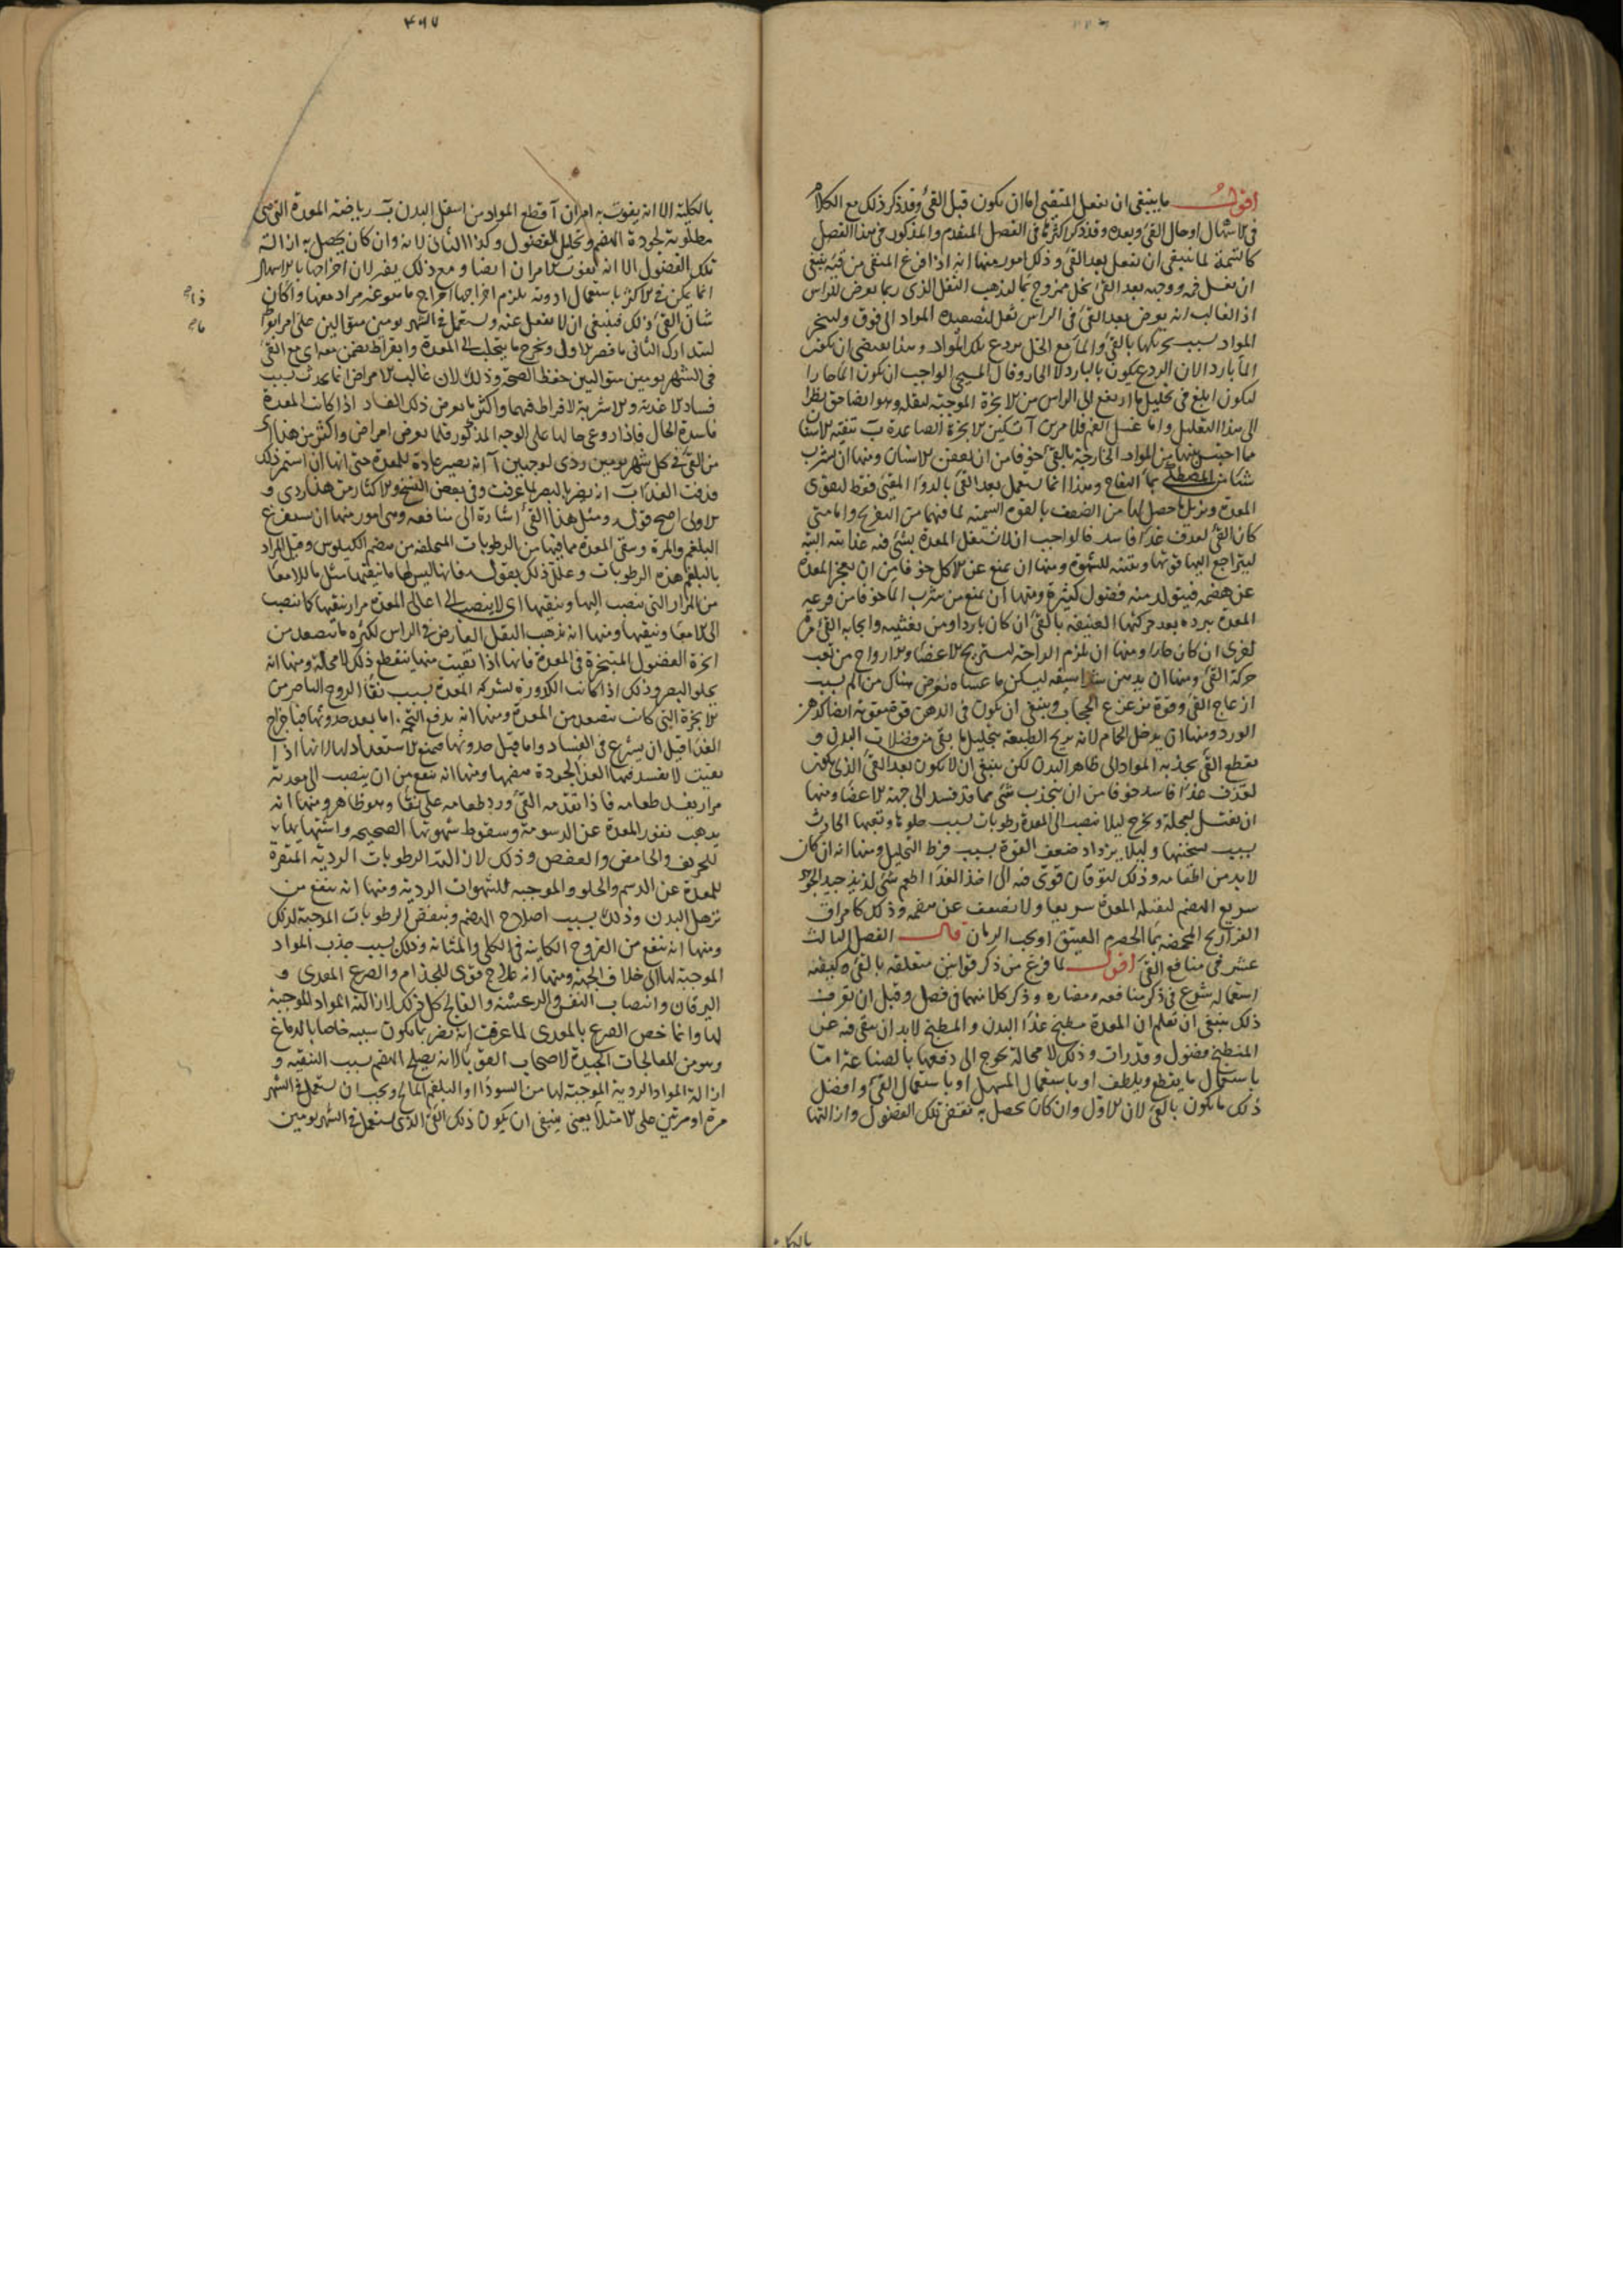 اقول ما ينبغى ان يفعل المتقيى اما ان يكون قبل القئ وقد ذكر ذلك مع الكلام
فى الاسهال او حال القئ وبعده وقد ذكر اكثرها فى الفصل المتقدم والمذكور فى هذا الفصل
كالتتمة لما ينبغى ان يفعل بعد القئ وذلك امور منها انه اذا فرغ المتقيى من قيئه ينبغى
ان يغسل فمه ووجهه بعد القئ بخل ممزوج بماء ليذهب الثقل الذى ربما يعرض للراس
اذ الغالب انه يعرض بعد القئ فى الراس ثقل لتصعيده المواد الى فوق
المواد بسبب تحريكها بالقئ والماء مع الخل يردع تلك المواد وهذا يقتضى ان يكون
الماء باردا لان الردع يكون بالبارد لا الحار وقال المسيحى الواجب ان يكون الماء حارا
ليكون ابلغ فى تحليل ما ارتفع الى الراس من الابخرة الموجبة لثقله وهو ايضا حق نظرا
الى هذا التعليل واما غسل الفم فلامرين آ تسكين الابخرة الصاعدة ب تنقية الاسنان
مما احتبس منها من المواد الخارجة بالقئ خوفا من ان يعفن الاسنان ومنها ان يشرب
شيئا من المصطكى بماء التفاح وهذا انما يستعمل بعد القئ بالدواء المقيئ فقط ليقوى
المعدة ويزيل ما حصل لها من الضعف بالقوة السمية لما فيهما من التفريح واما متى
كان القئ لقذف غذاء فاسد فالواجب ان لا تشغل المعدة بشئ فيه غذائية البتة
ليتراجع اليها قوتها وتنبه للشهوة ومنها ان يمنع عن الاكل خوفا من ان يعجز المعدة
عن هضمه فيتولد منه فضول كثيرة ومنها ان يمنع من شرب الماء خوفا من قرعه
المعدة ببرده بعد حركتها العنيفة بالقئ ان كان باردا ومن تغثيته وايجابه القئ مرة
اخرى ان كان حارا ومنها ان يلزم الراحة ليستريح الاعضاء والارواح من تعب
حركة القئ ومنها ان يدهن شراسيفه ليسكن ما عساه يعرض هناك من الم بسبب
ازعاج القئ وقوة تزعزع الحجاب وينبغى ان يكون فى الدهن قوة مقوية ايضا كدهن
الورد ومنها ان يدخل الحمام لانه يريح الطبيعة بتحليل ما بقى من فضلات البدن و
يقطع القئ بجذبه المواد الى ظاهر البدن لكن ينبغى ان لا يكون بعد القئ الذى يكون
لقذف غذاء فاسد خوفا من ان ينجذب شئ مما قد فسد الى جهة الاعضاء ومنها
ان يغتسل بعجلة ويخرج ليلا تنصب الى المعدة رطوبات بسبب خلوها وتعبها الحادث
بسبب سخنتها وليلا يزداد ضعف القوة بسبب فرط التحليل ومنها انه ان كان
لا بد من اطعامه وذلك لتوقان قوى فيه الى اخذ الغذاء اطعم شئ لذيذ جيد الجوهر
سريع الهضم لتقبله المعدة سريعا ولا تضعف عن هضمه وذلك كامراق
الفراريج المحمضة بماء الحصرم العتيق او بحب الرمان قال الفصل الثالث
عشر فى منافع القئ اقول لما فرغ من ذكر قوانين متعلقة بالقئ وكيفية
استعماله شرع فى ذكر منافعه ومضاره وذكر كلا منهما فى فصل وقبل ان نعرف
ذلك ينبغى ان تعلم ان المعدة مطبخ غذاء البدن والمطبخ لا بد ان يبقى فيه عن
المنطبخ فضول وقذرات وذلك لا محالة يحوج الى دفعها بالصناعة اما
باستعمال ما يقطع ويلطف او باستعمال المسهل او باستعمال القئ وافضل
ذلك ما يكون بالقئ لان الاول وان كان يحصل به نقض تلك الفضول وازالتها
بالكلية
٤٩٧
بالكلية الا انه يفوت به امران آ قطع المواد من اسفل البدن ب رياضة المعدة التى هى
مطلوبة لجودة الهضم وتحليل الفضول وكذا الثانى لانه وان كان يحصل به ازالة
تلك الفضول الا انه يفوت الامران ايضا ومع ذلك يضر لان اخراجها بالاسهال
انما يمكن فى الاكثر باستعمال ادوية يلزم اخراجها اخراج ما هو غير مراد معها واذا كان
شان القئ ذلك فينبغى ان لا يغفل عنه ويستعمل فى الشهر يومين متواليين على امر ابقراط
ليتدارك الثانى ما قصر الاول ويخرج ما يتحلب الى المعدة وابقراط يضمن معه اى مع القئ
فى الشهر يومين متواليين حفظ الصحة وذلك لان غالب الامراض انما يحدث بسبب
فساد الاغذية والاشربة لافراط فيهما واكثر ما يعرض ذلك الفساد اذا كانت المعدة
فاسدة الحال فاذا روعى حالها على الوجه المذكور قلما يعرض امراض واكثر من هذا اى
من القئ فى كل شهر يومين ردى لوجهين آ انه يصير عادة للمعدة حتى انها ان استمر ذلك
قذفت الغذاء ب انه يضر بالبصر لما عرفت وفى بعض النسخ والاكثار من هذا ردى و
الاولى اصح قوله ومثل هذا القئ اشارة الى منافعه وهى امور منها ان يستفرغ
البلغم والمرة وينقى المعدة مما فيها من الرطوبات المتخلفة من هضم الكيلوس وقيل المراد
بالبلغم هذه الرطوبات وعلل ذلك بقوله فانها ليس لها ما ينقيها مثل ما للامعاء
من المرار التى تنصب اليها وينقيها اى لا ينصب الى اعالى المعدة مرار ينقيها كما ينصب
الى الامعاء وينقيها ومنها انه يذهب الثقل العارض فى الراس لكثرة ما يتصعد من
ابخرة الفضول المتبخرة فى المعدة فانها اذا نقيت منها ينقطع ذلك لا محالة ومنها انه
يجلو البصر وذلك اذا كانت الكدورة لشركة المعدة بسبب نقاء الروح الباصر من
الابخرة التى كانت تتصعد من المعدة ومنها انه يدفع التخمة اما بعد حدوثها فباخراج
الغذاء قبل ان يسرع فى الفساد واما قبل حدوثها فبمنع الاستعداد لها لانها اذا
نقيت لا يفسد فيها الغذاء لجودة هضمها ومنها انه ينفع من ان ينصب الى معدته
مرار يفسد طعامه فاذا تقدمه القئ ورد طعامه على نقاء وهو ظاهر ومنها انه
يذهب نفور المعدة عن الدسومة وسقوط شهوتها الصحيحة واشتهائها
للحريف والحامض والعفص وذلك لازالته الرطوبات الردية المنفرة
للمعدة عن الدسم والحلو والموجبة للشهوات الردية ومنها انه ينفع من
ترهل البدن وذلك بسبب اصلاح الهضم وبنفض الرطوبات الموجبة لذلك
ومنها انه ينفع من القروح الكاينة فى الكلى والمثانة وذلك بسبب جذب المواد
الموجبة لها الى خلاف الجهة ومنها انه علاج قوى للجذام والصرع المعدى و
اليرقان وانتصاب النفس والرعشة والفالج كل ذلك لازالة المواد الموجبة
لها وانما خص الصرع بالمعدى لما عرفت انه يضر بما يكون سببه خاصا بالدماغ
وهو من المعالجات الجيدة لاصحاب القوبا لانه يصلح الهضم بسبب التنقية و
ازالة المواد الردية الموجبة لها من السوداء او البلغم المالح ويجب ان يستعمل فى الشهر
مرة او مرتين على الامتلاء يعنى ينبغى ان يكون ذلك القئ الذى يستعمل فى الشهر يومين